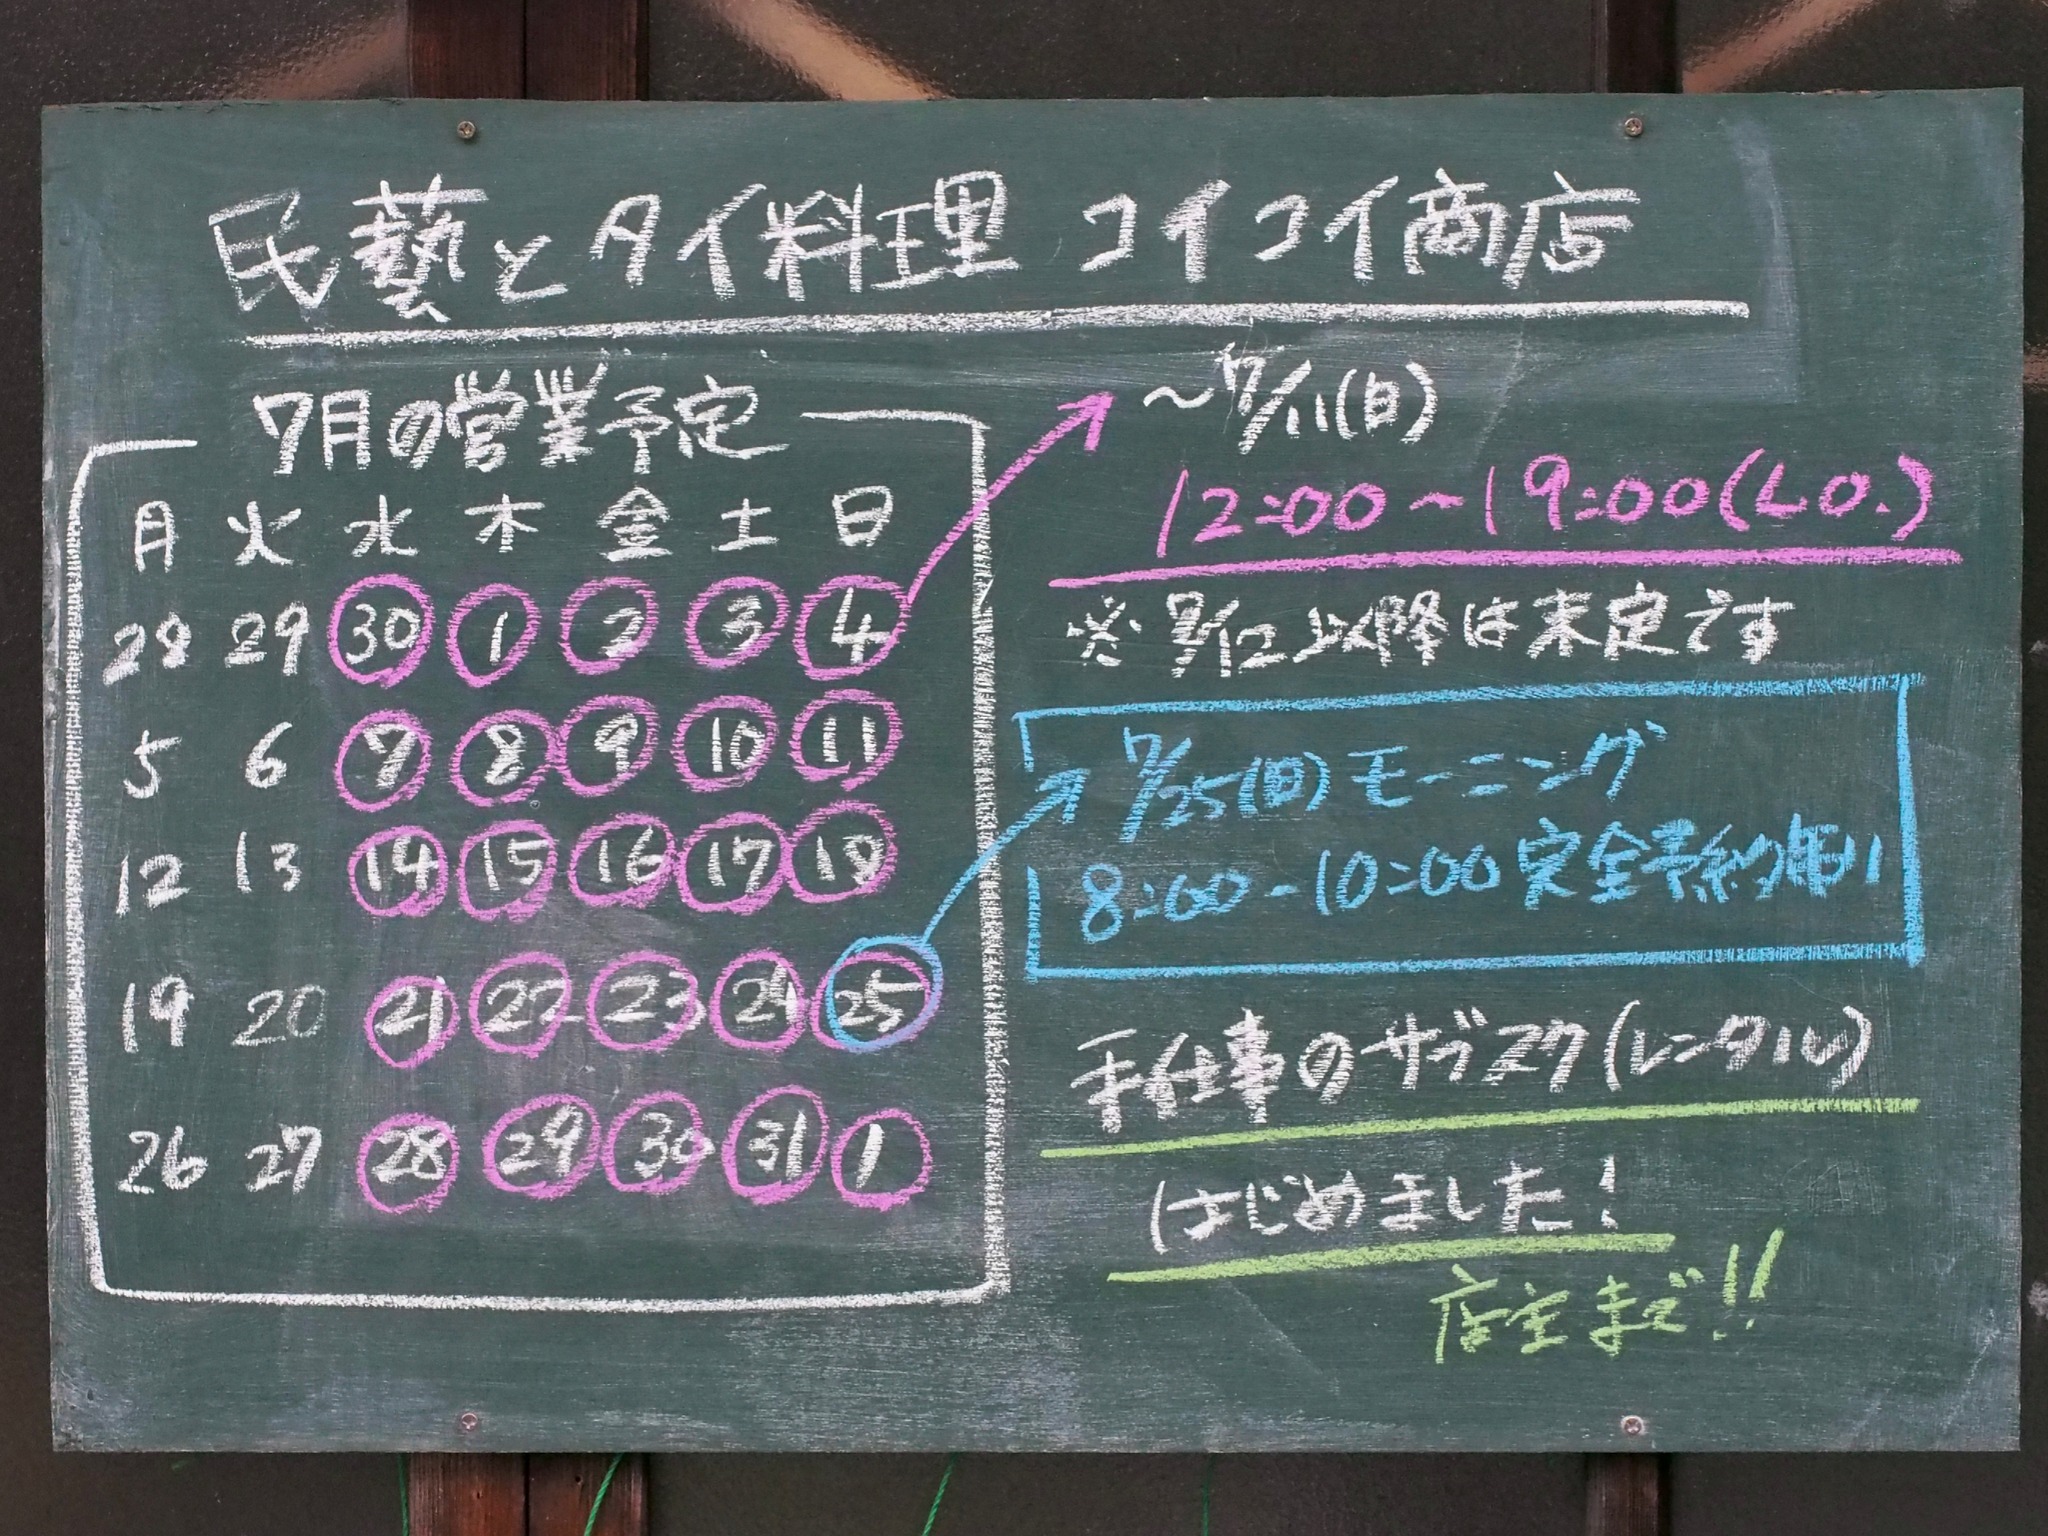 民藝とタイ料理 コイコイ商店
7月の営業予定
月 火 水 木 金 土 日
28 29 30 1 2 3 4
5 6 7 8 9 10 11
12 13 14 15 16 17 18
19 20 21 22 23 24 25
26 27 28 29 30 31 1
～7/11(日)
12:00～19:00(L.O.)
※7/12以降は未定です
7/25(日)モーニング
8:00-10:00完全予約制
手仕事のサブスク(レンタル)
はじめました!
店主まで!!